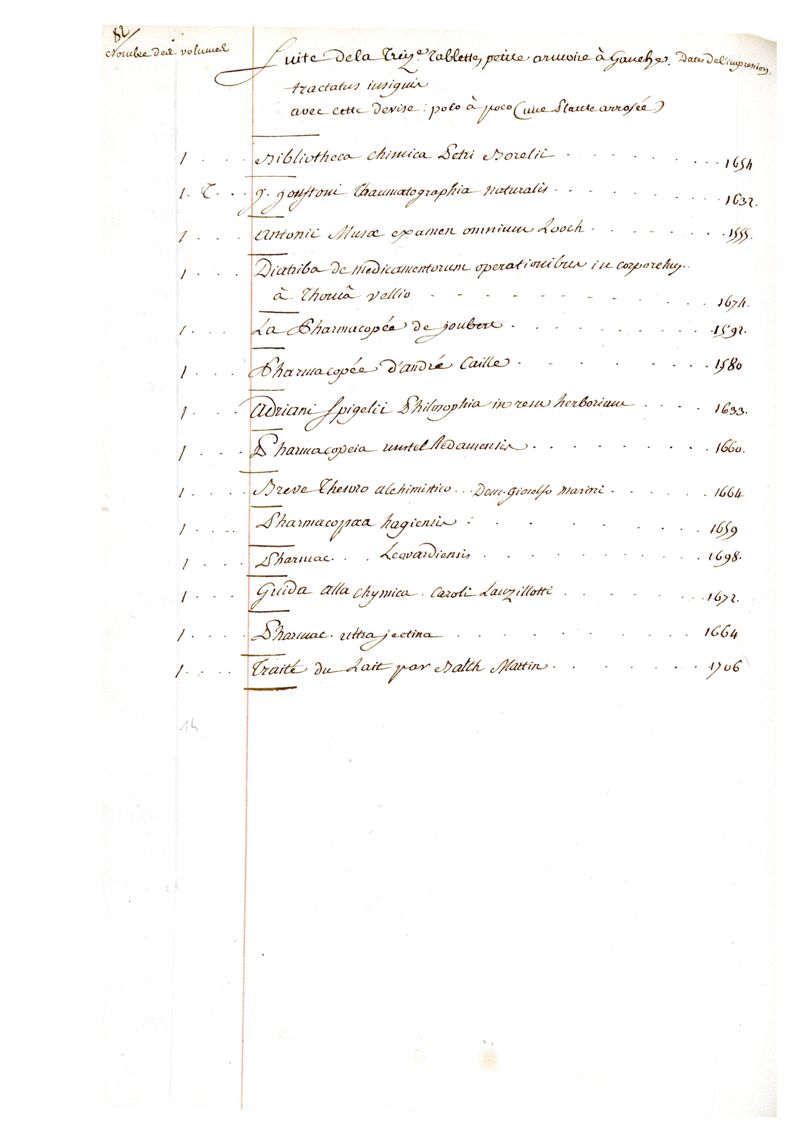 82
Nombre des volumes Suite de la Treiz.e Tablette, petite armoire à Gauche. Dates de l'impression.
tractatus insignis
avec cette devise : poco à poco (une Plante arrosée)
1 . . . . Bibliotheca chimica Petri Borelii . . . . . . . . . . 1654
1. T . . . J. Jonstoni Thaumatographia naturalis . . . . . . . . . 1632.
1 . . . . Antonii Musæ examen omnium Looch . . . . . . . . 1555.
1 . . . . Diatriba de medicamentorum operationibus in corpore hu..
à Thoma vellio . . . . . . . . . . 1674.
1 . . . . La Pharmacopée de Joubert . . . . . . . . . . 1592.
1 . . . . Pharmacopée d'andré Caille . . . . . . . . . 1580
1 . . . . Adriani Spigelii Philosophia in rem herboriam . . . . 1633.
1 . . . . Pharmacopeia amstelRedamensis . . . . . . . . 1660.
1 . . . . Breve Thesoro alchimistico . . . Dom. Gioielfo Marini . . . . . . 1664
1 . . . . Pharmacopæa hagiensis : . . . . . . . . 1659
1 . . . . Pharmac. . . Leovardiensis . . . . . . . . . 1698.
1 . . . . Guida alla chymica . Caroli Lanzillotti . . . . . . . 1672.
1 . . . . Pharmac. ultrajectina . . . . . . . . . . 1664
1 . . . . Traité du Lait par Balth Mattin . . . . . . . 1706
14